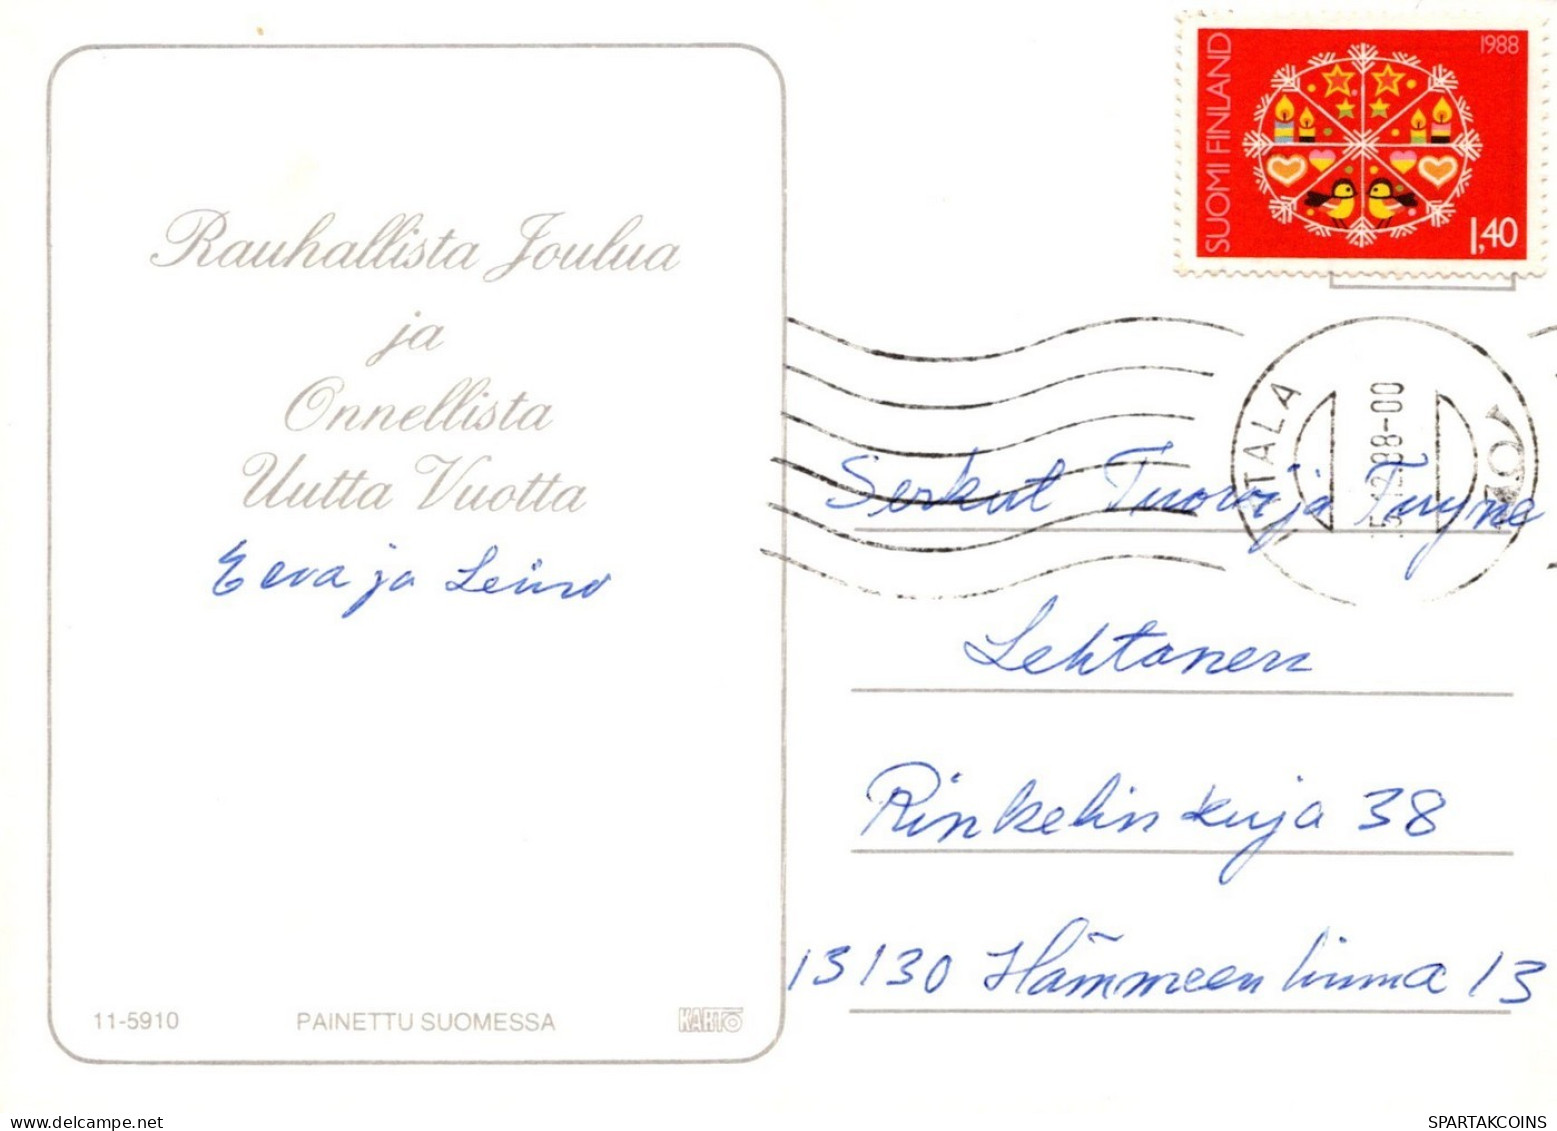 Rauhallista Joulua
ja
Onnellista
Uutta Vuotta
Eeva ja
11-5910 PAINETTU SUOMESSA KARTO
SUOMI FINLAND
1988
1,40
ITALA
5.12.88-00
Serkut Tuovi ja Tuyne
Lehtonen
Rinkelinkuja 38
13130 Hämmeenlinna 13
SPARTAKCOINS.COM